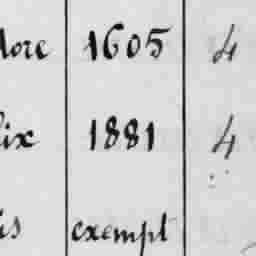 dore 1605 4
lix 1881 4
is exempt